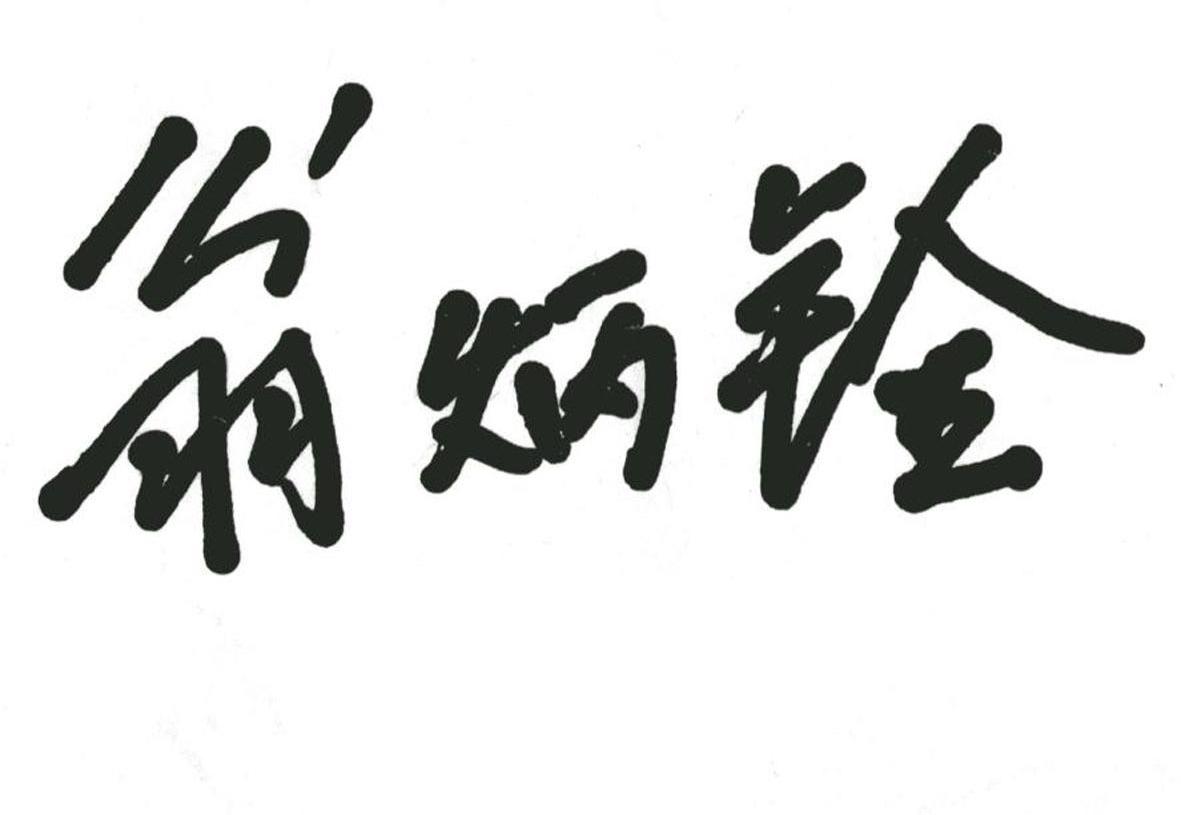 翁炳铨